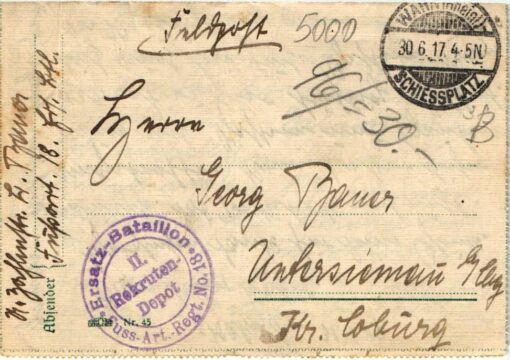 Feldpost
5000
WAHN (Rheinl.)
30 6.17. 4-5N
SCHIESSPLATZ
96/=30.-
Herrn
Georg Bauer
Untersiemau
Kr. Coburg
L. Bauer
Absender
Ersatz-Bataillon
Fuss-Art. Regt. No. 18.
II.
Rekruten-
Depot
Nr. 45